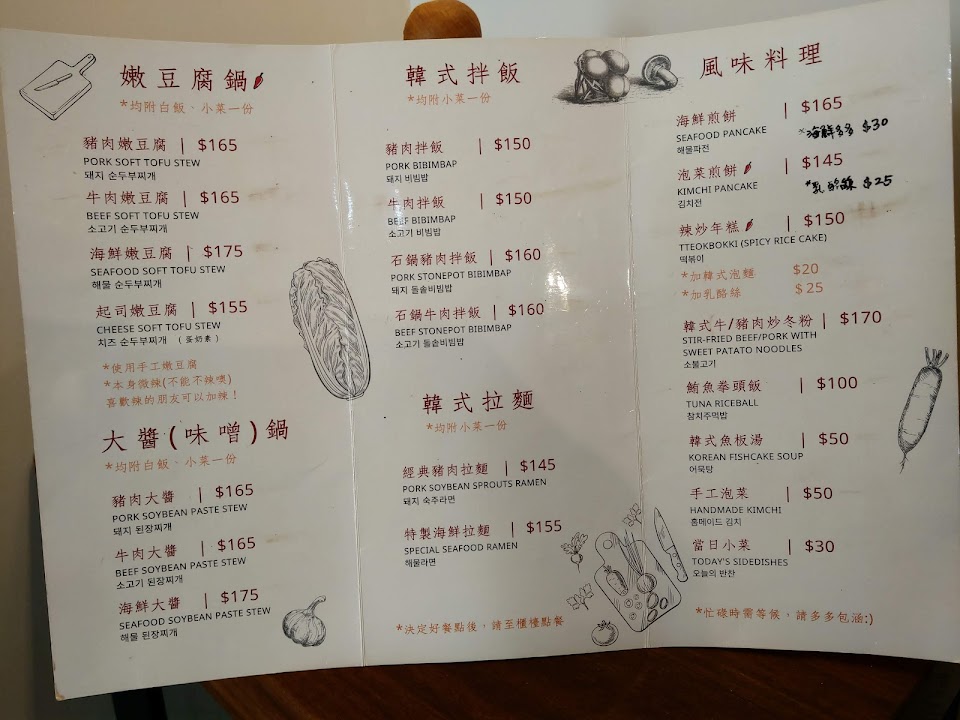 嫩豆腐鍋
*均附白飯、小菜一份
豬肉嫩豆腐 | $165
PORK SOFT TOFU STEW
돼지 순두부찌개
牛肉嫩豆腐 | $165
BEEF SOFT TOFU STEW
소고기 순두부찌개
海鮮嫩豆腐 | $175
SEAFOOD SOFT TOFU STEW
해물 순두부찌개
起司嫩豆腐 | $155
CHEESE SOFT TOFU STEW
치즈 순두부찌개 (蛋奶素)
*使用手工嫩豆腐
*本身微辣(不能不辣噢)
喜歡辣的朋友可以加辣！
大醬(味噌)鍋
*均附白飯、小菜一份
豬肉大醬 | $165
PORK SOYBEAN PASTE STEW
돼지 된장찌개
牛肉大醬 | $165
BEEF SOYBEAN PASTE STEW
소고기 된장찌개
海鮮大醬 | $175
SEAFOOD SOYBEAN PASTE STEW
해물 된장찌개
韓式拌飯
*均附小菜一份
豬肉拌飯 | $150
PORK BIBIMBAP
돼지 비빔밥
牛肉拌飯 | $150
BEEF BIBIMBAP
소고기 비빔밥
石鍋豬肉拌飯 | $160
PORK STONEPOT BIBIMBAP
돼지 돌솥비빔밥
石鍋牛肉拌飯 | $160
BEEF STONEPOT BIBIMBAP
소고기 돌솥비빔밥
韓式拉麵
*均附小菜一份
經典豬肉拉麵 | $145
PORK SOYBEAN SPROUTS RAMEN
돼지 숙주라면
特製海鮮拉麵 | $155
SPECIAL SEAFOOD RAMEN
해물라면
*決定好餐點後，請至櫃檯點餐
風味料理
海鮮煎餅 | $165
SEAFOOD PANCAKE
해물파전
*海鮮多多 $30
泡菜煎餅 | $145
KIMCHI PANCAKE
김치전
*乳酪絲 $25
辣炒年糕 | $150
TTEOKBOKKI (SPICY RICE CAKE)
떡볶이
*加韓式泡麵 $20
*加乳酪絲 $25
韓式牛/豬肉炒冬粉 | $170
STIR-FRIED BEEF/PORK WITH
SWEET PATATO NOODLES
소불고기
鮪魚拳頭飯 | $100
TUNA RICEBALL
참치주먹밥
韓式魚板湯 | $50
KOREAN FISHCAKE SOUP
어묵탕
手工泡菜 | $50
HANDMADE KIMCHI
홈메이드 김치
當日小菜 | $30
TODAY'S SIDEDISHES
오늘의 반찬
*忙碌時需等候，請多多包涵:)